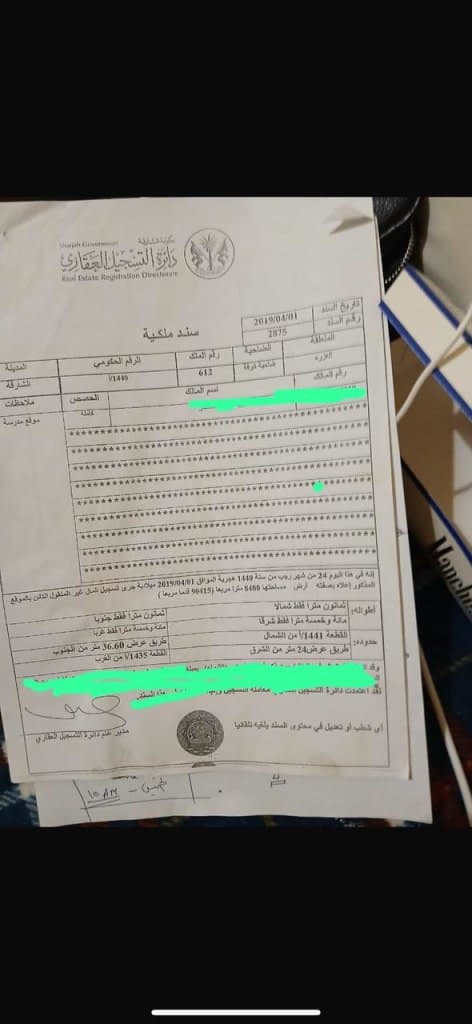 Sharjah Government
حكومة الشارقة
دائرة التسجيل العقاري
Real Estate Registration Directorate
سند ملكية
تاريخ السند 2019/04/01
رقم السند 2875
المدينة الرقم الحكومي رقم الملك الضاحية المنطقة
الشارقة 1440/أ 612 ضاحية
رقم المالك اسم المالك الحصص ملاحظات
كاملة موقع مدرسة
إنه في هذا اليوم 24 من شهر رجب من سنة 1440 هجرية الموافق 2019/04/01 ميلادية جرى تسجيل المال غير المنقول الكائن بالموقع
المذكور أعلاه بصفته أرض مساحتها 8400 مترا مربعا (90415 قدما مربعا)
أطواله: ثمانون مترا فقط شمالا ثمانون مترا فقط جنوبا
مائة وخمسة مترا فقط شرقا مائة وخمسة مترا فقط غربا
حدوده: القطعة 1441/أ من الشمال طريق عرض 36.60 متر من الجنوب
طريق عرض 24 متر من الشرق القطعة 1435/أ من الغرب
لقد اعتمدت دائرة التسجيل معاملة التسجيل هذا السند
أي شطب أو تعديل في محتوى السند يلغيه تلقائيا
مدير عام دائرة التسجيل العقاري
10 AM